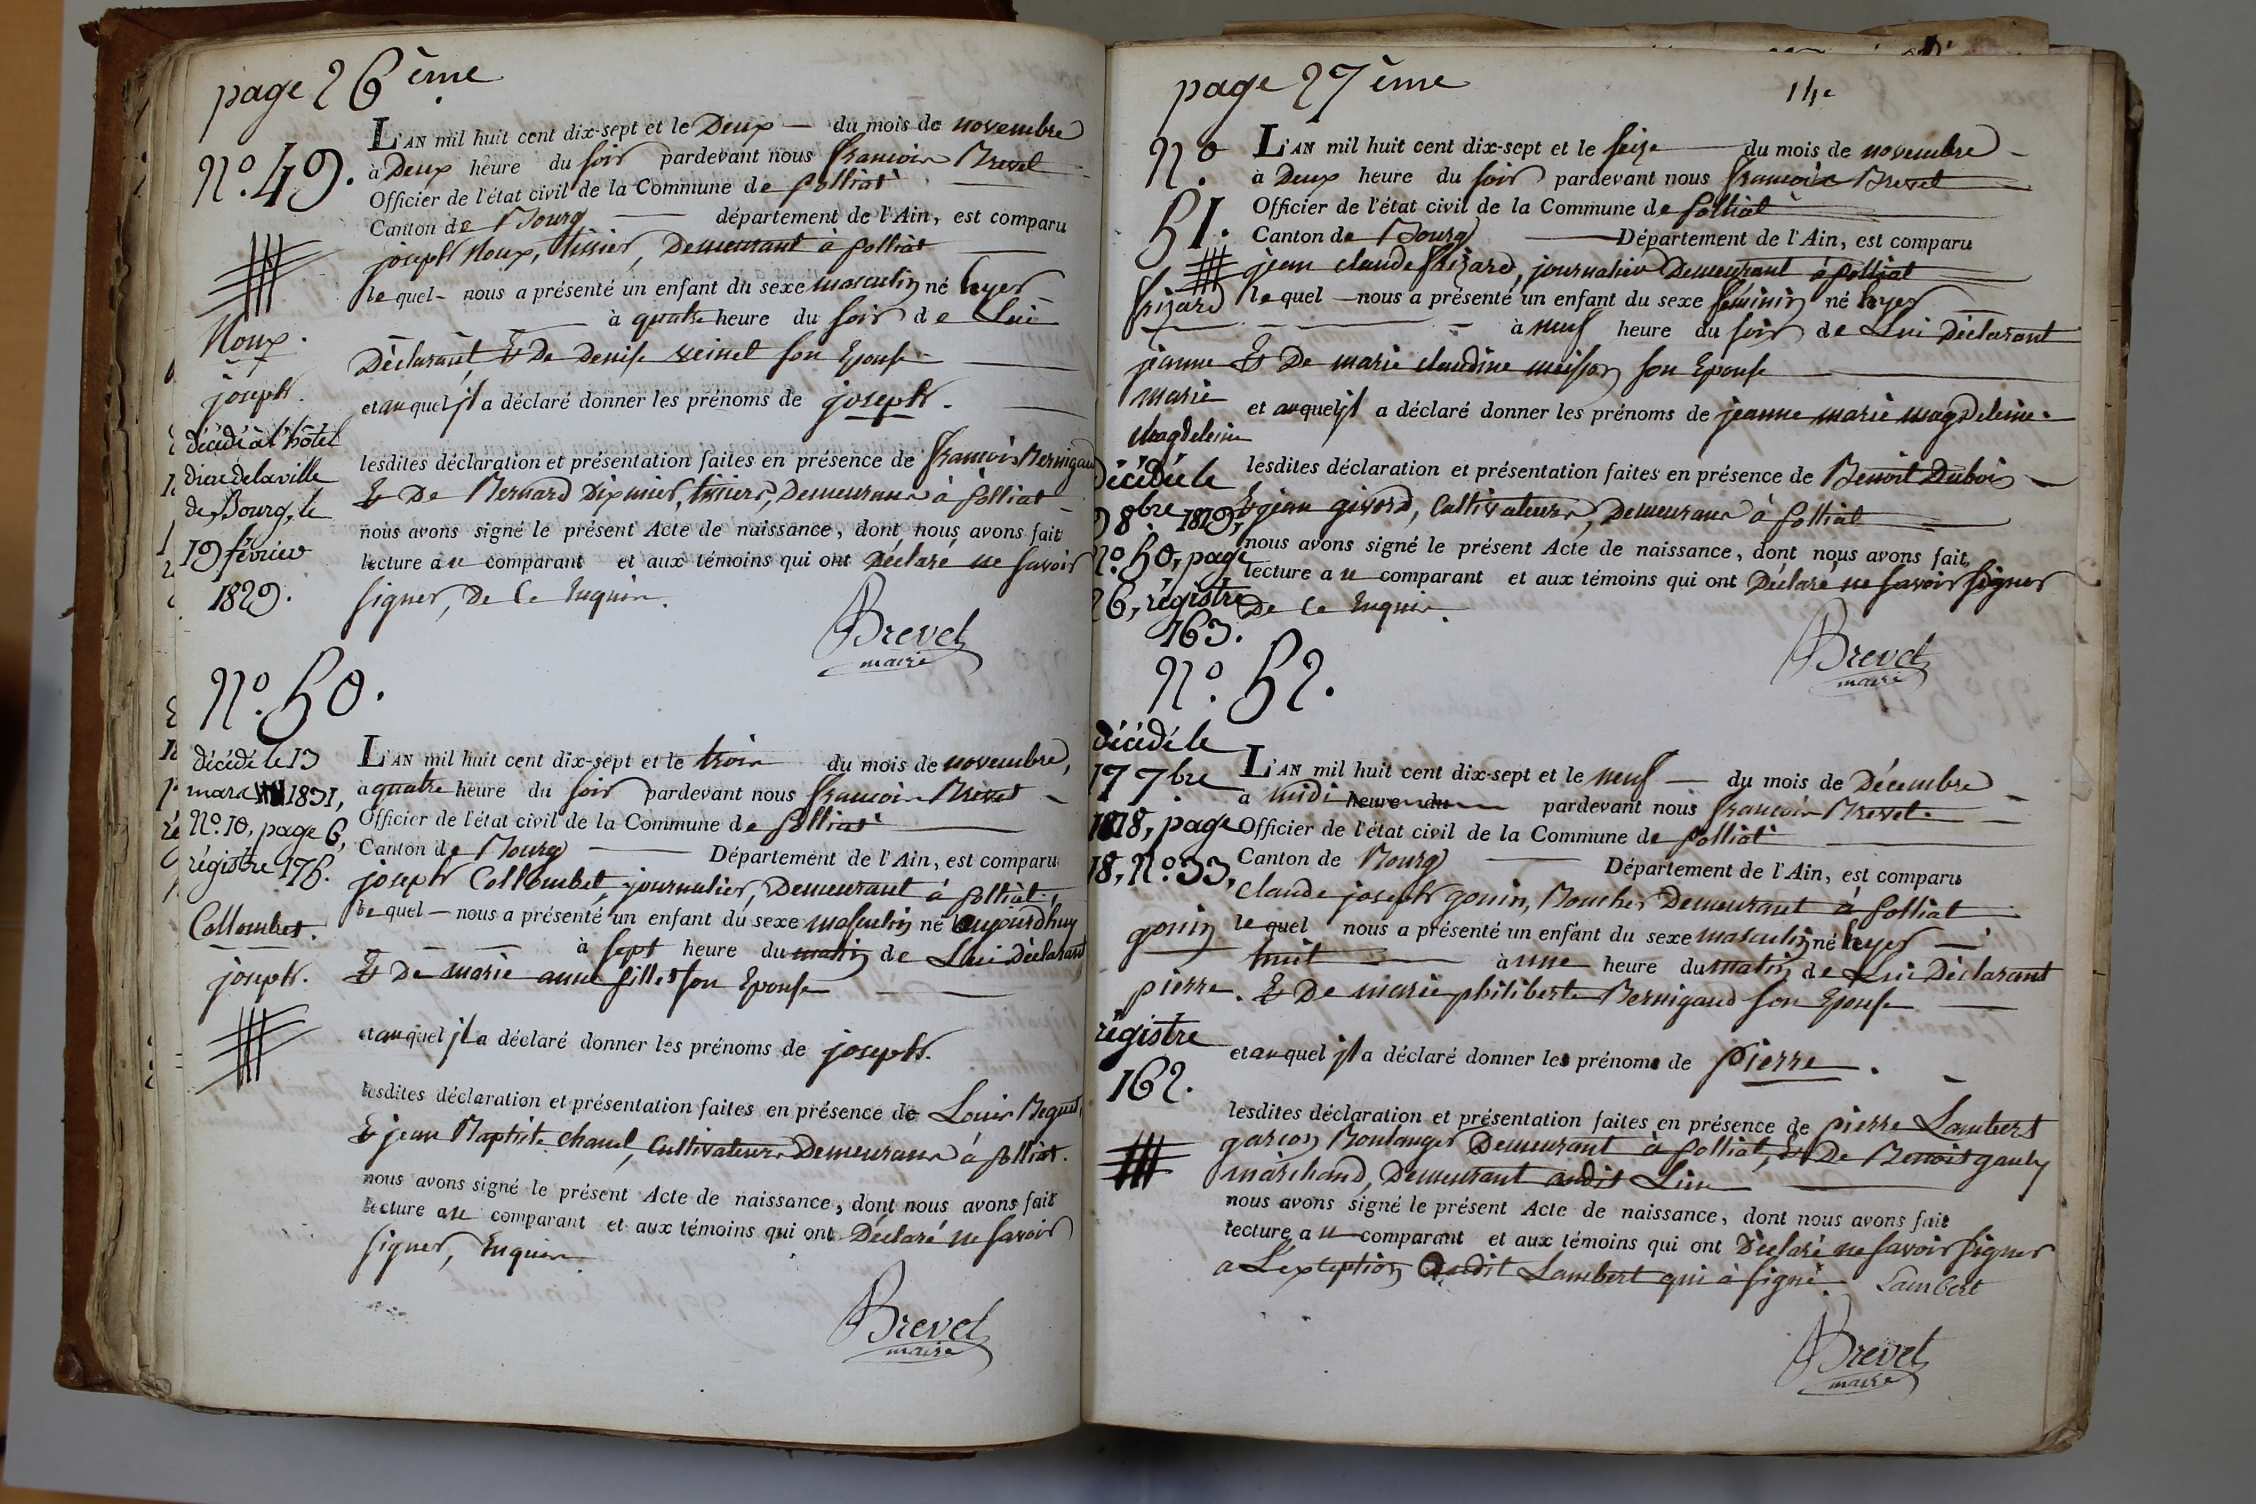 page 26ème
N°. 49.
L'AN mil huit cent dix-sept et le Deux — du mois de novembre
à Deux heure du soir pardevant nous françois Brevet
Officier de l'état civil de la Commune de polliat
Canton de Bourg — département de l'Ain, est comparu
joseph Noux, tissier, Demeurant à polliat
lequel nous a présenté un enfant du sexe masculin né hyer
à quatre heure du soir de Lui
Déclarant, & De Denise son Epouse
et auquel jl a déclaré donner les prénoms de joseph.
lesdites déclaration et présentation faites en présence de françois Bernigaud
& De Bernard Dixmier, tissiers, Demeurans à polliat
nous avons signé le présent Acte de naissance, dont nous avons fait
lecture au comparant et aux témoins qui ont Déclaré ne savoir
signer, De Ce Enquis.
Brevet
maire
Noux.
joseph.
décédé à l'hôtel
dieu de la ville
de Bourg, le
19 février
1829.
N°. 50.
décédé le 13
mars 1831,
N°. 10, page 6,
régistre 175.
Collombet.
joseph.
L'AN mil huit cent dix-sept et le trois du mois de novembre,
à quatre heure du soir pardevant nous françois Brevet
Officier de l'état civil de la Commune de polliat
Canton de Bourg — Département de l'Ain, est comparu
joseph Collombet, journalier, Demeurant à polliat,
lequel — nous a présenté un enfant du sexe masculin né aujourd'huy
à sept heure du matin de Lui Déclarant
& De marie anne fillet son Epouse
et auquel jl a déclaré donner les prénoms de joseph.
lesdites déclaration et présentation faites en présence de Louis Bequet,
& jean Baptiste chanel, Cultivateurs Demeurans à polliat.
nous avons signé le présent Acte de naissance, dont nous avons fait
lecture au comparant et aux témoins qui ont Déclaré ne savoir
signer, Enquis.
Brevet
maire
page 27ème
14e
N°.
51.
L'AN mil huit cent dix-sept et le seize du mois de novembre
à Deux heure du soir pardevant nous françois Brevet
Officier de l'état civil de la Commune de polliat
Canton de Bourg — Département de l'Ain, est comparu
jean claude frizard, journalier Demeurant à polliat
lequel — nous a présenté un enfant du sexe féminin né hyer
à neuf heure du soir de Lui Déclarant
& De marie claudine son Epouse
et auquel jl a déclaré donner les prénoms de jeanne marie magdeleine.
lesdites déclaration et présentation faites en présence de Benoit Dubois
& jean givord, Cultivateurs, Demeurans à polliat
nous avons signé le présent Acte de naissance, dont nous avons fait
lecture au comparant et aux témoins qui ont Déclaré ne savoir signer
De Ce Enquis.
Brevet
maire
frizard
jeanne
marie
Magdeleine
décédée le
9 8bre 1819,
N°. 50, page
26, régistre
163.
N°. 52.
décédé le
17 7bre
1818, page
18, N°. 33,
gonin
pierre.
régistre
162.
L'AN mil huit cent dix-sept et le neuf — du mois de Décembre
à midi heure du pardevant nous françois Brevet.
Officier de l'état civil de la Commune de polliat
Canton de Bourg — Département de l'Ain, est comparu
Claude joseph gonin, Boucher Demeurant à polliat
lequel nous a présenté un enfant du sexe masculin né hyer
huit à une heure du matin de Lui Déclarant
& De marie philiberte Bernigaud son Epouse
et auquel jl a déclaré donner les prénoms de pierre.
lesdites déclaration et présentation faites en présence de pierre Lambert
garçon Boulanger Demeurant à polliat, & De Benoit
marchand, Demeurant audit Lieu
nous avons signé le présent Acte de naissance, dont nous avons fait
lecture au comparant et aux témoins qui ont Déclaré ne savoir signer
a L'exception dudit Lambert qui à signé. Lambert
Brevet
maire